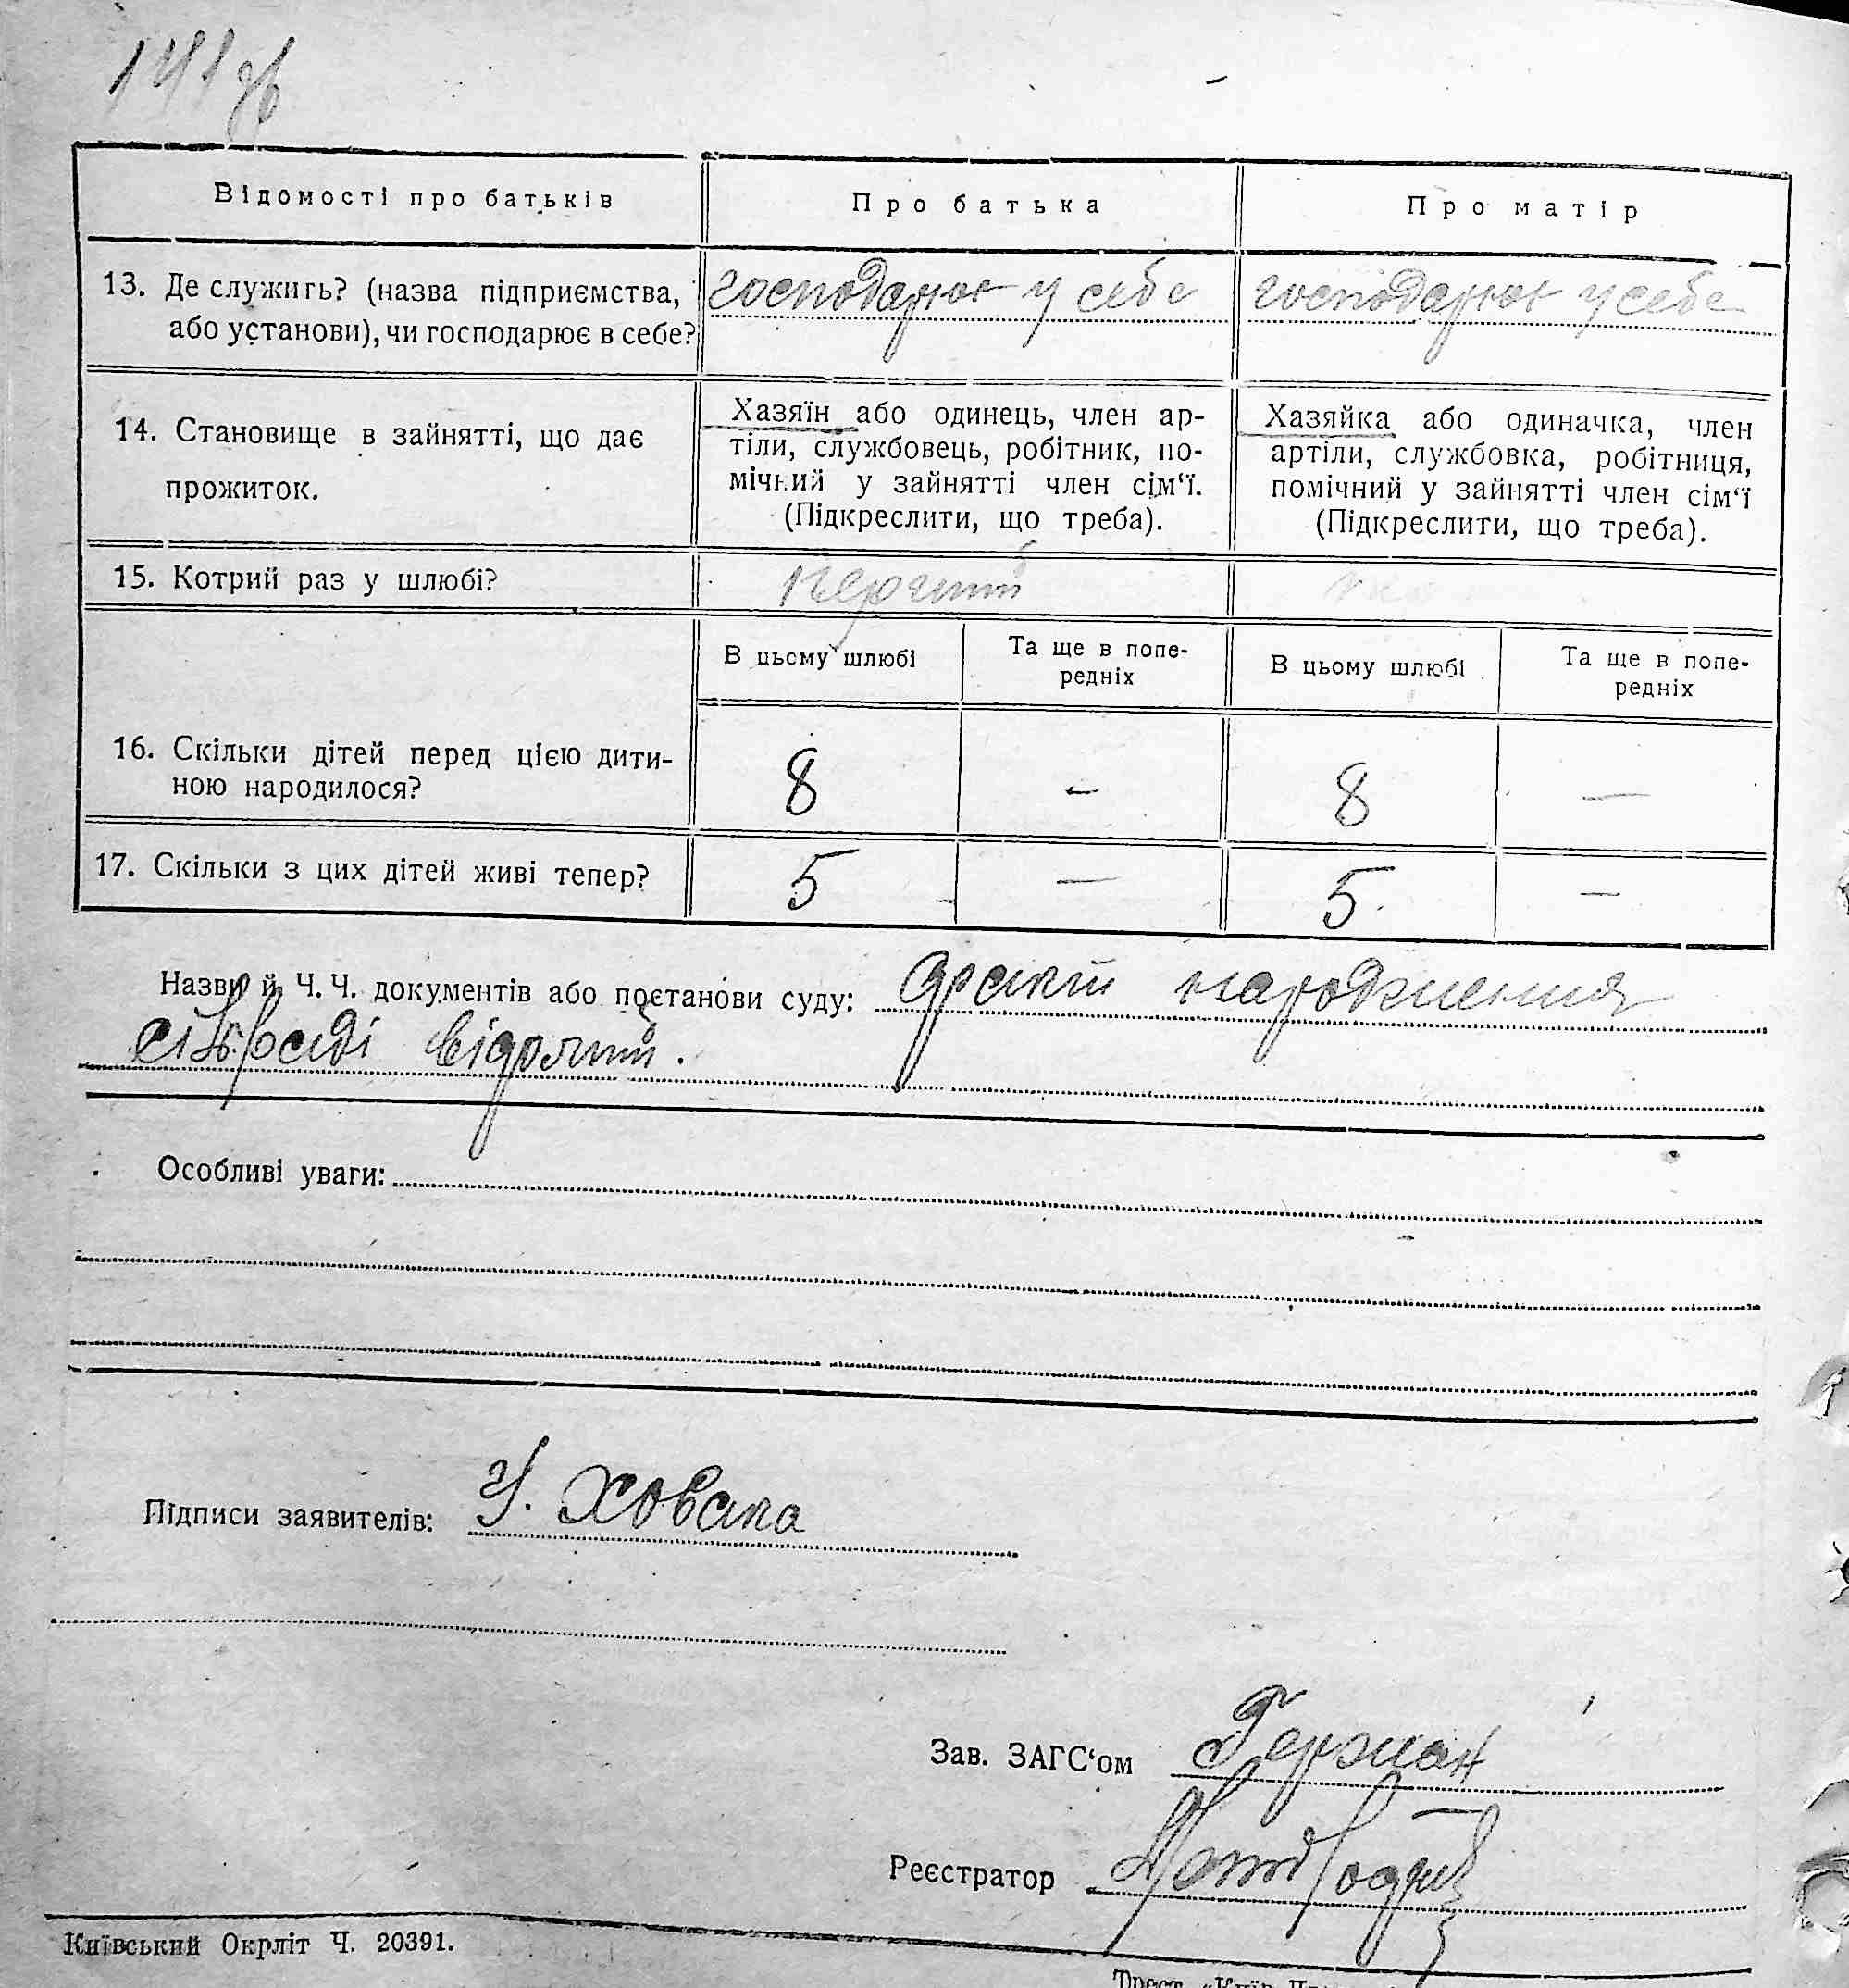 141 зв
Відомості про батьків
Про батька
Про матір
13. Де служить? (назва підприємства,
або установи), чи господарює в себе?
господарює у себе
господарює у себе
14. Становище в зайнятті, що дає
прожиток.
Хазяїн або одинець, член ар-
тіли, службовець, робітник, по-
мічний у зайнятті член сім‘ї.
(Підкреслити, що треба).
Хазяйка або одиначка, член
артіли, службовка, робітниця,
помічний у зайнятті член сім‘ї
(Підкреслити, що треба).
15. Котрий раз у шлюбі?
перший
В цьому шлюбі
Та ще в попе-
редніх
В цьому шлюбі
Та ще в попе-
редніх
16. Скільки дітей перед цією дити-
ною народилося?
8
-
8
-
17. Скільки з цих дітей живі тепер?
5
-
5
-
Назви й Ч. Ч. документів або постанови суду: факт народження
сільраді відомий.
Особливі уваги:
Підписи заявителів: У. Ховака
Зав. ЗАГС‘ом Герман
Реєстратор
Київський Окрліт Ч. 20391.
Трест „Київ